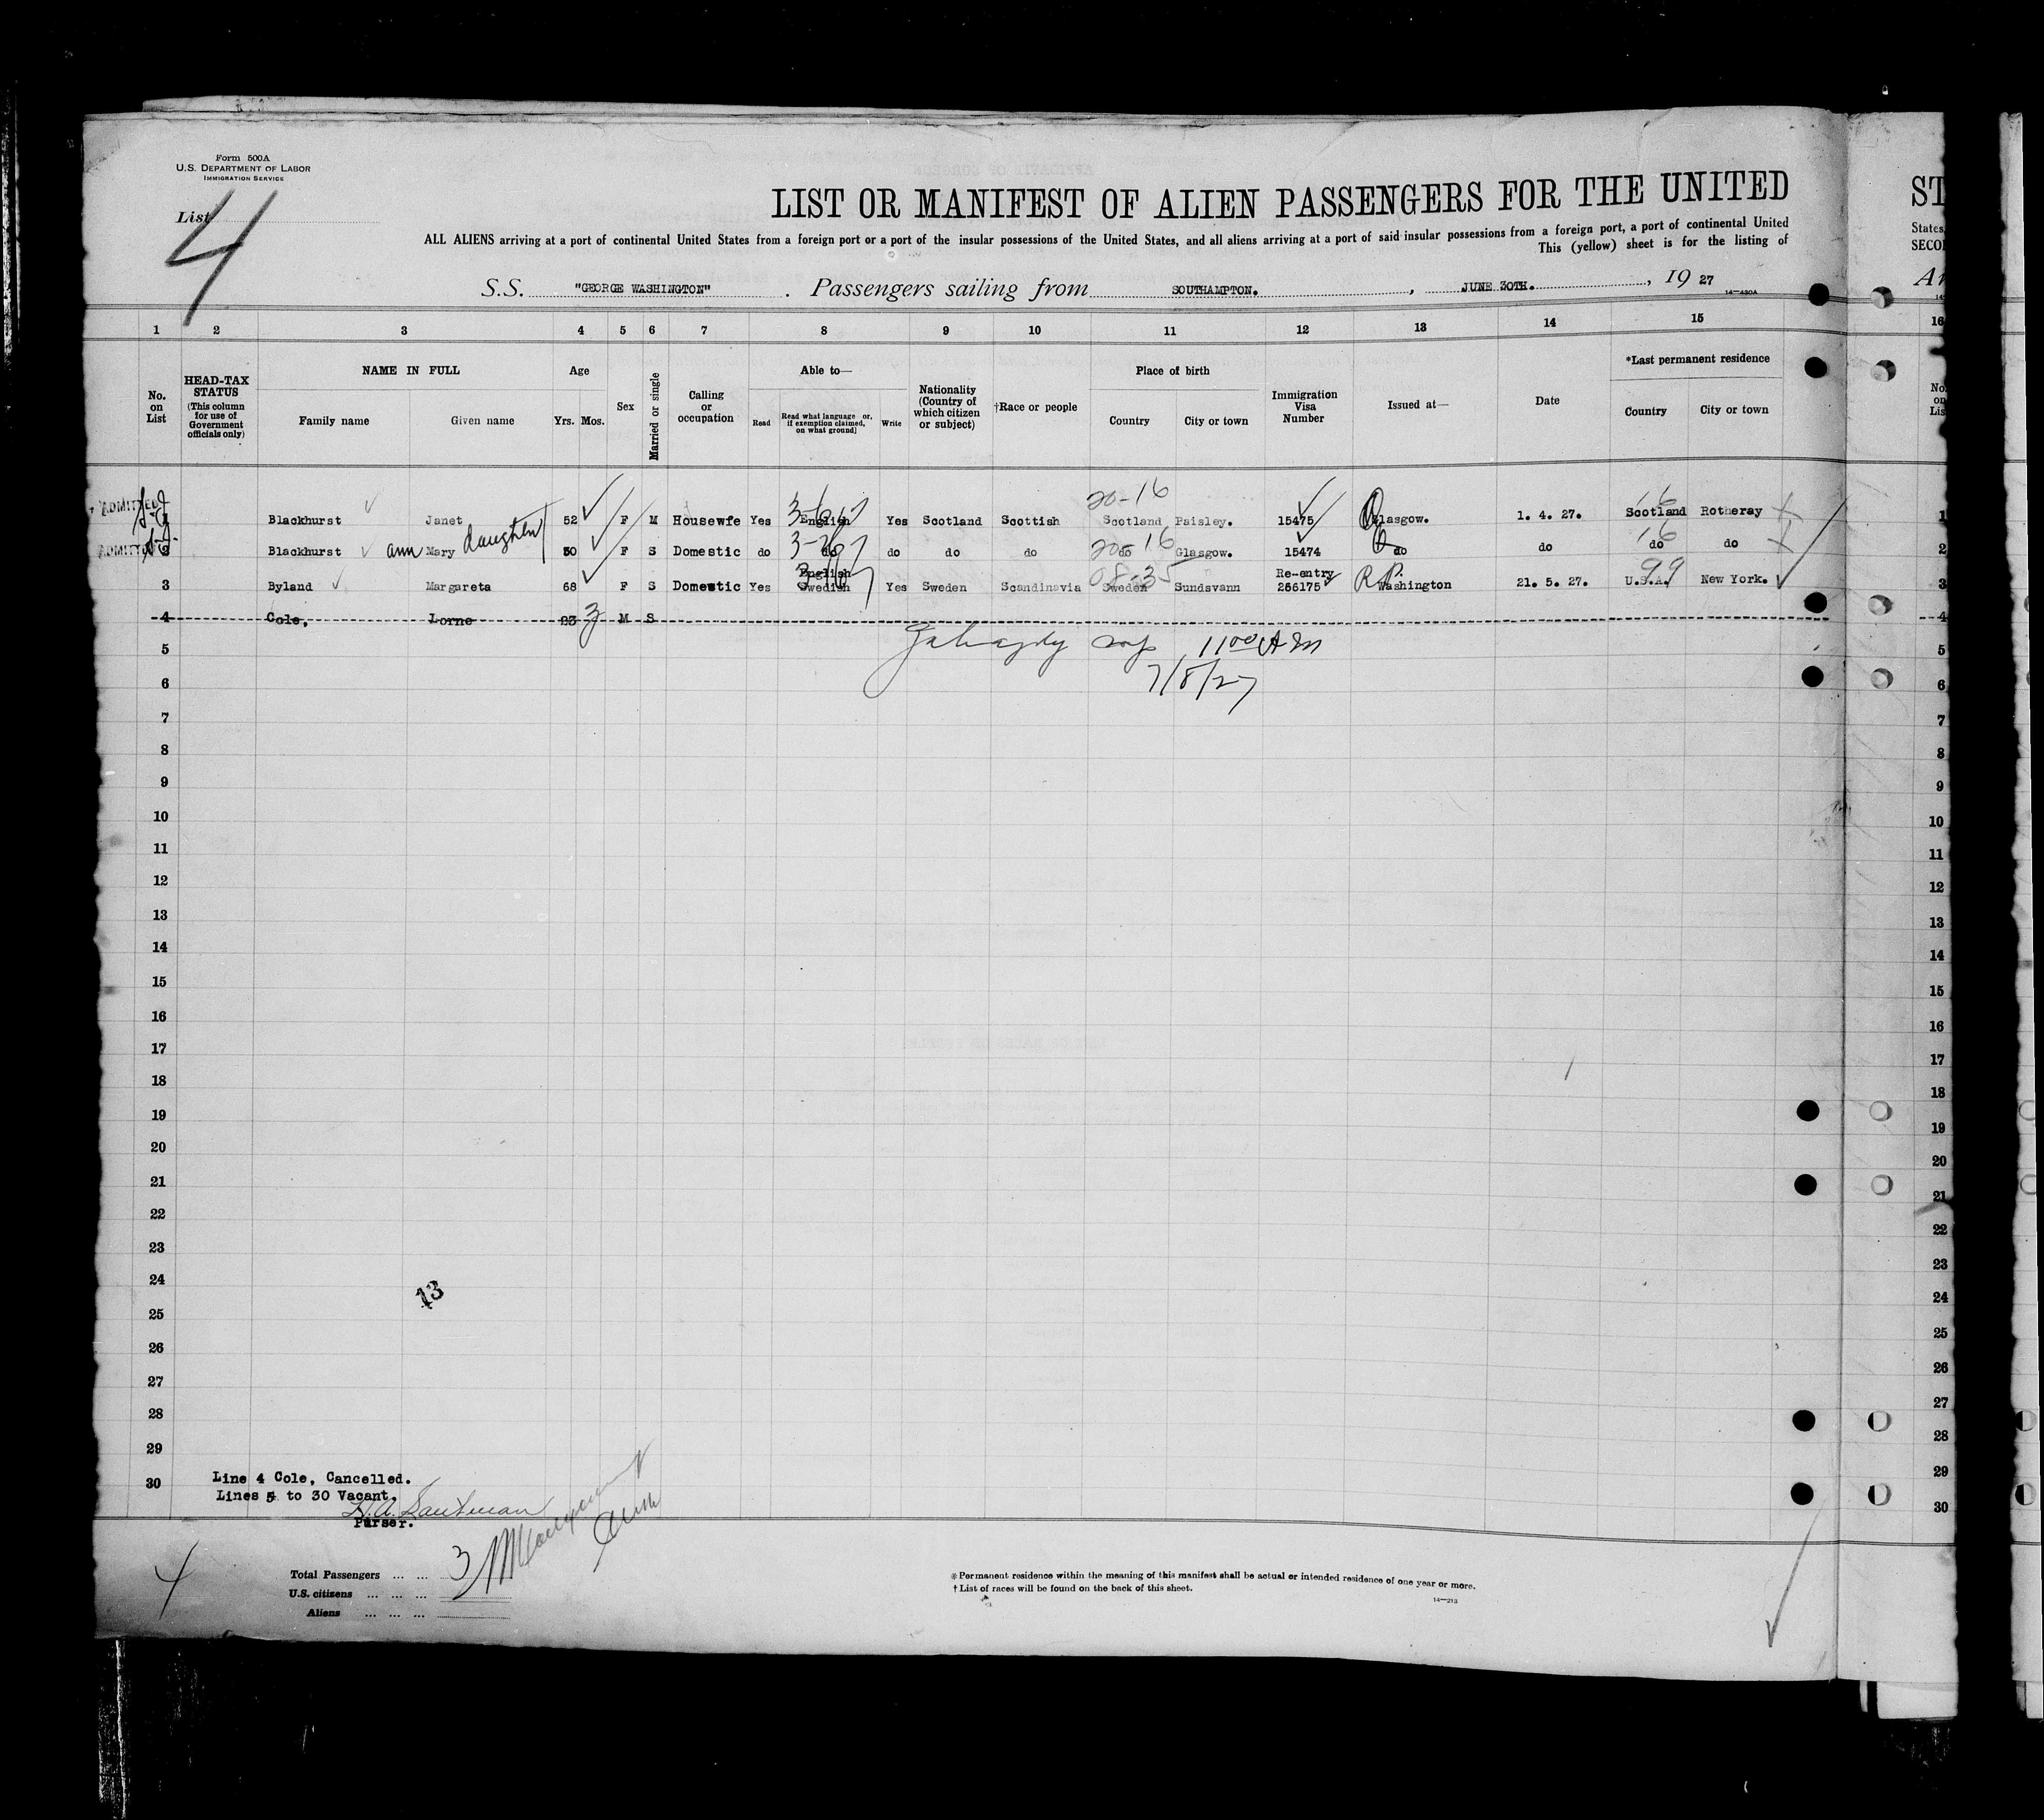 Form 500A
U.S. DEPARTMENT OF LABOR
IMMIGRATION SERVICE
List 4
LIST OR MANIFEST OF ALIEN PASSENGERS FOR THE UNITED
ST
ALL ALIENS arriving at a port of continental United States from a foreign port or a port of the insular possessions of the United States, and all aliens arriving at a port of said insular possessions from a foreign port, a port of continental United
States,
This (yellow) sheet is for the listing of
SECO
S.S. "GEORGE WASHINGTON" . Passengers sailing from SOUTHAMPTON. , JUNE 30TH. , 19 27
14—480A
1 2 3 4 5 6 7 8 9 10 11 12 13 14 15 16
No. on List
HEAD-TAX STATUS (This column for use of Government officials only)
NAME IN FULL
Family name Given name
Age
Yrs. Mos.
Sex
Married or single
Calling or occupation
Able to—
Read
Read what language [or, if exemption claimed, on what ground]
Write
Nationality (Country of which citizen or subject)
†Race or people
Place of birth
Country City or town
Immigration Visa Number
Issued at—
Date
*Last permanent residence
Country City or town
No. on List
20-16 16
ADMITTED 1 Blackhurst Janet 52 F M Housewfe Yes English Yes Scotland Scottish Scotland Paisley. 15475 Glasgow. 1. 4. 27. Scotland Rotheray 1
ADMITTED 2 Blackhurst ann Mary daughter 30 F S Domestic do do do do do do Glasgow. 15474 do do do do 2
20-16 16
English Re-entry
3 Byland Margareta 68 F S Domestic Yes Swedish Yes Sweden Scandinavia Sweden Sundsvann 266175 R.P. Washington 21. 5. 27. U.S.A. New York. 3
08-35 99
4 Cole, Lorne 23 M S 4
3
5 1100 A M 5
6 7/8/27 6
7 7
8 8
9 9
10 10
11 11
12 12
13 13
14 14
15 15
16 16
17 17
18 18
19 19
20 20
21 21
22 22
23 23
24 24
13
25 25
26 26
27 27
28 28
29 29
30 30
Line 4 Cole, Cancelled.
Lines 5 to 30 Vacant.
Purser.
4
Total Passengers ... ... 3
U.S. citizens ... ... ...
Aliens ... ... ...
*Permanent residence within the meaning of this manifest shall be actual or intended residence of one year or more.
†List of races will be found on the back of this sheet.
14—213